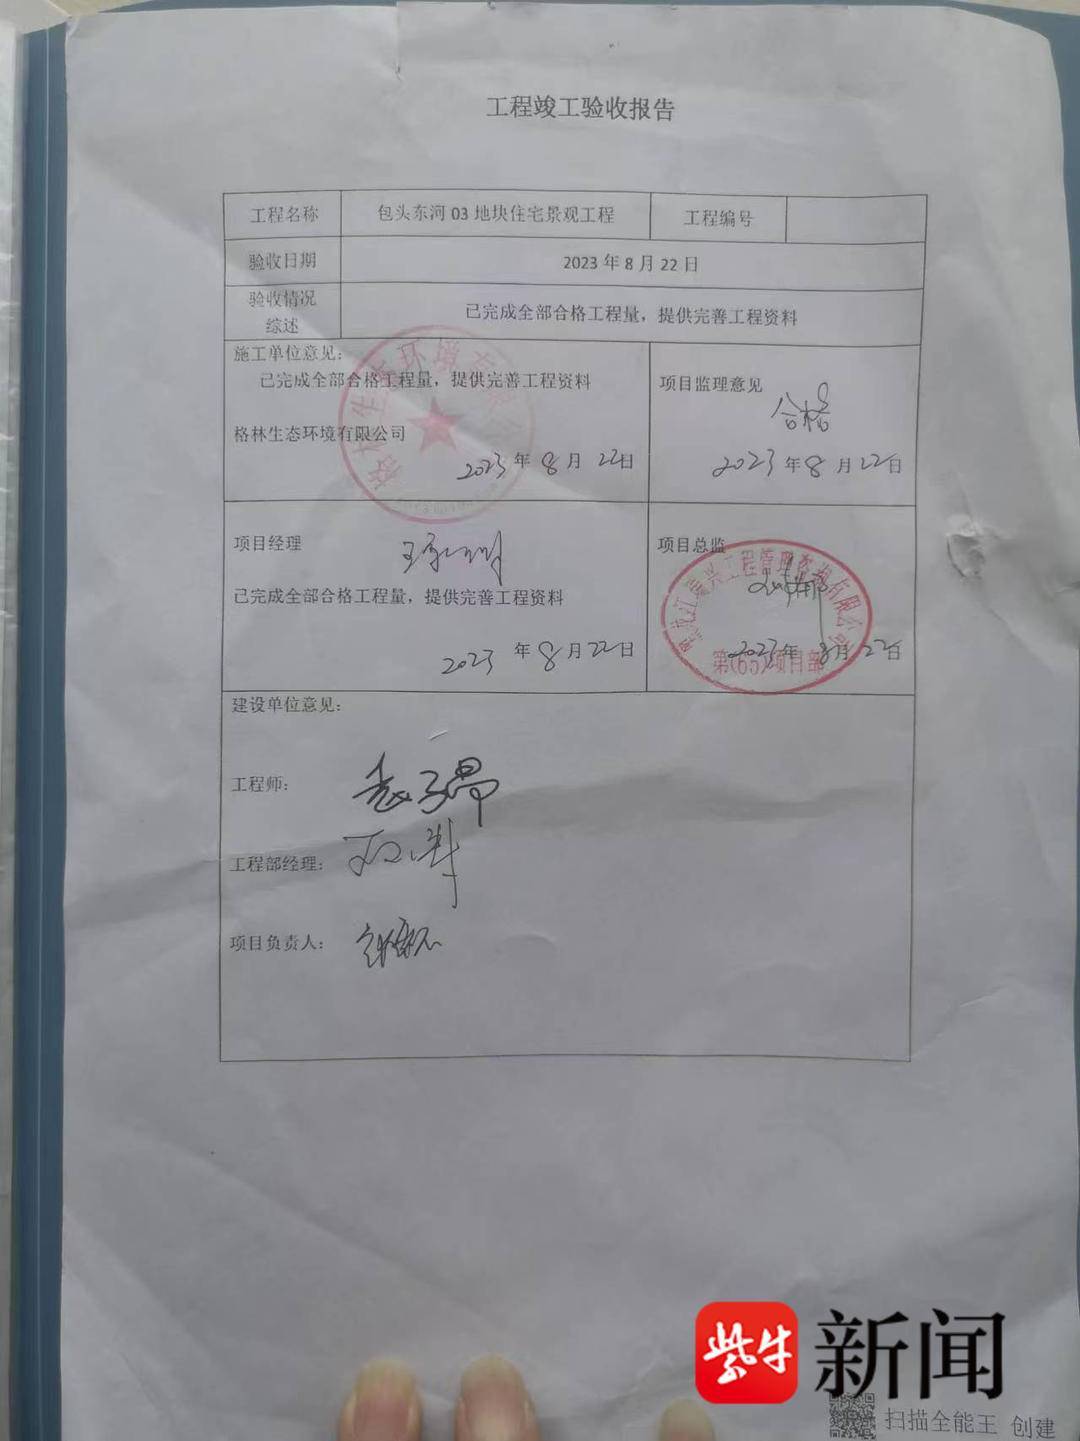 工程竣工验收报告
工程名称 包头东河 03 地块住宅景观工程 工程编号
验收日期 2023 年 8 月 22 日
验收情况
综述
已完成全部合格工程量，提供完善工程资料
施工单位意见：
已完成全部合格工程量，提供完善工程资料
格林生态环境有限公司
2023 年 8 月 22 日
格林生态环境有限公司
项目监理意见
合格
2023 年 8 月 22 日
项目经理
已完成全部合格工程量，提供完善工程资料
2023 年 8 月 22 日
项目总监
工程管理咨询有限公司
第(65)项目部
2023 年 8 月 22 日
建设单位意见：
工程师：
工程部经理：
项目负责人：
紫牛 新闻
扫描全能王 创建